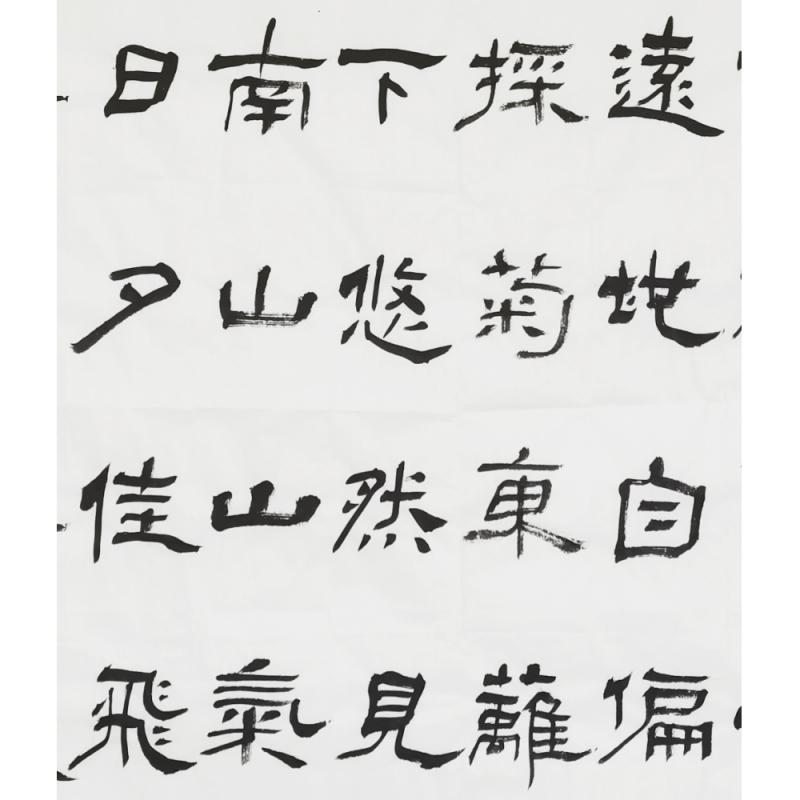 遠地自偏
採菊東蘺
下悠然見
南山山氣
日夕佳飛